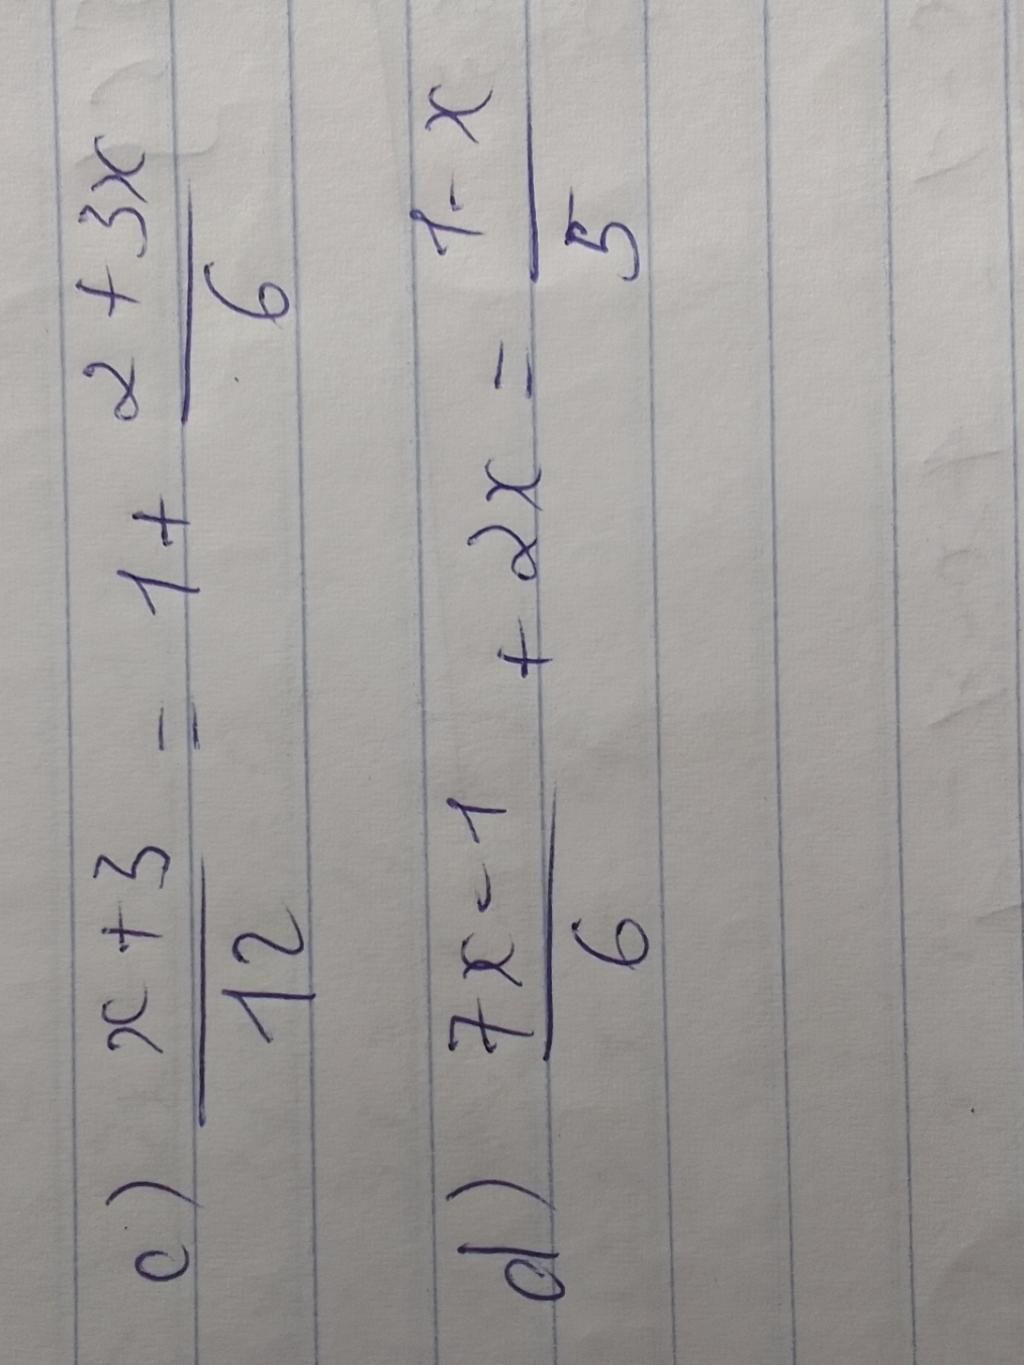 c) x + 3 / 12 = 1 + 2 + 3x / 6
d) 7x - 1 / 6 + 2x = 1 - x / 5